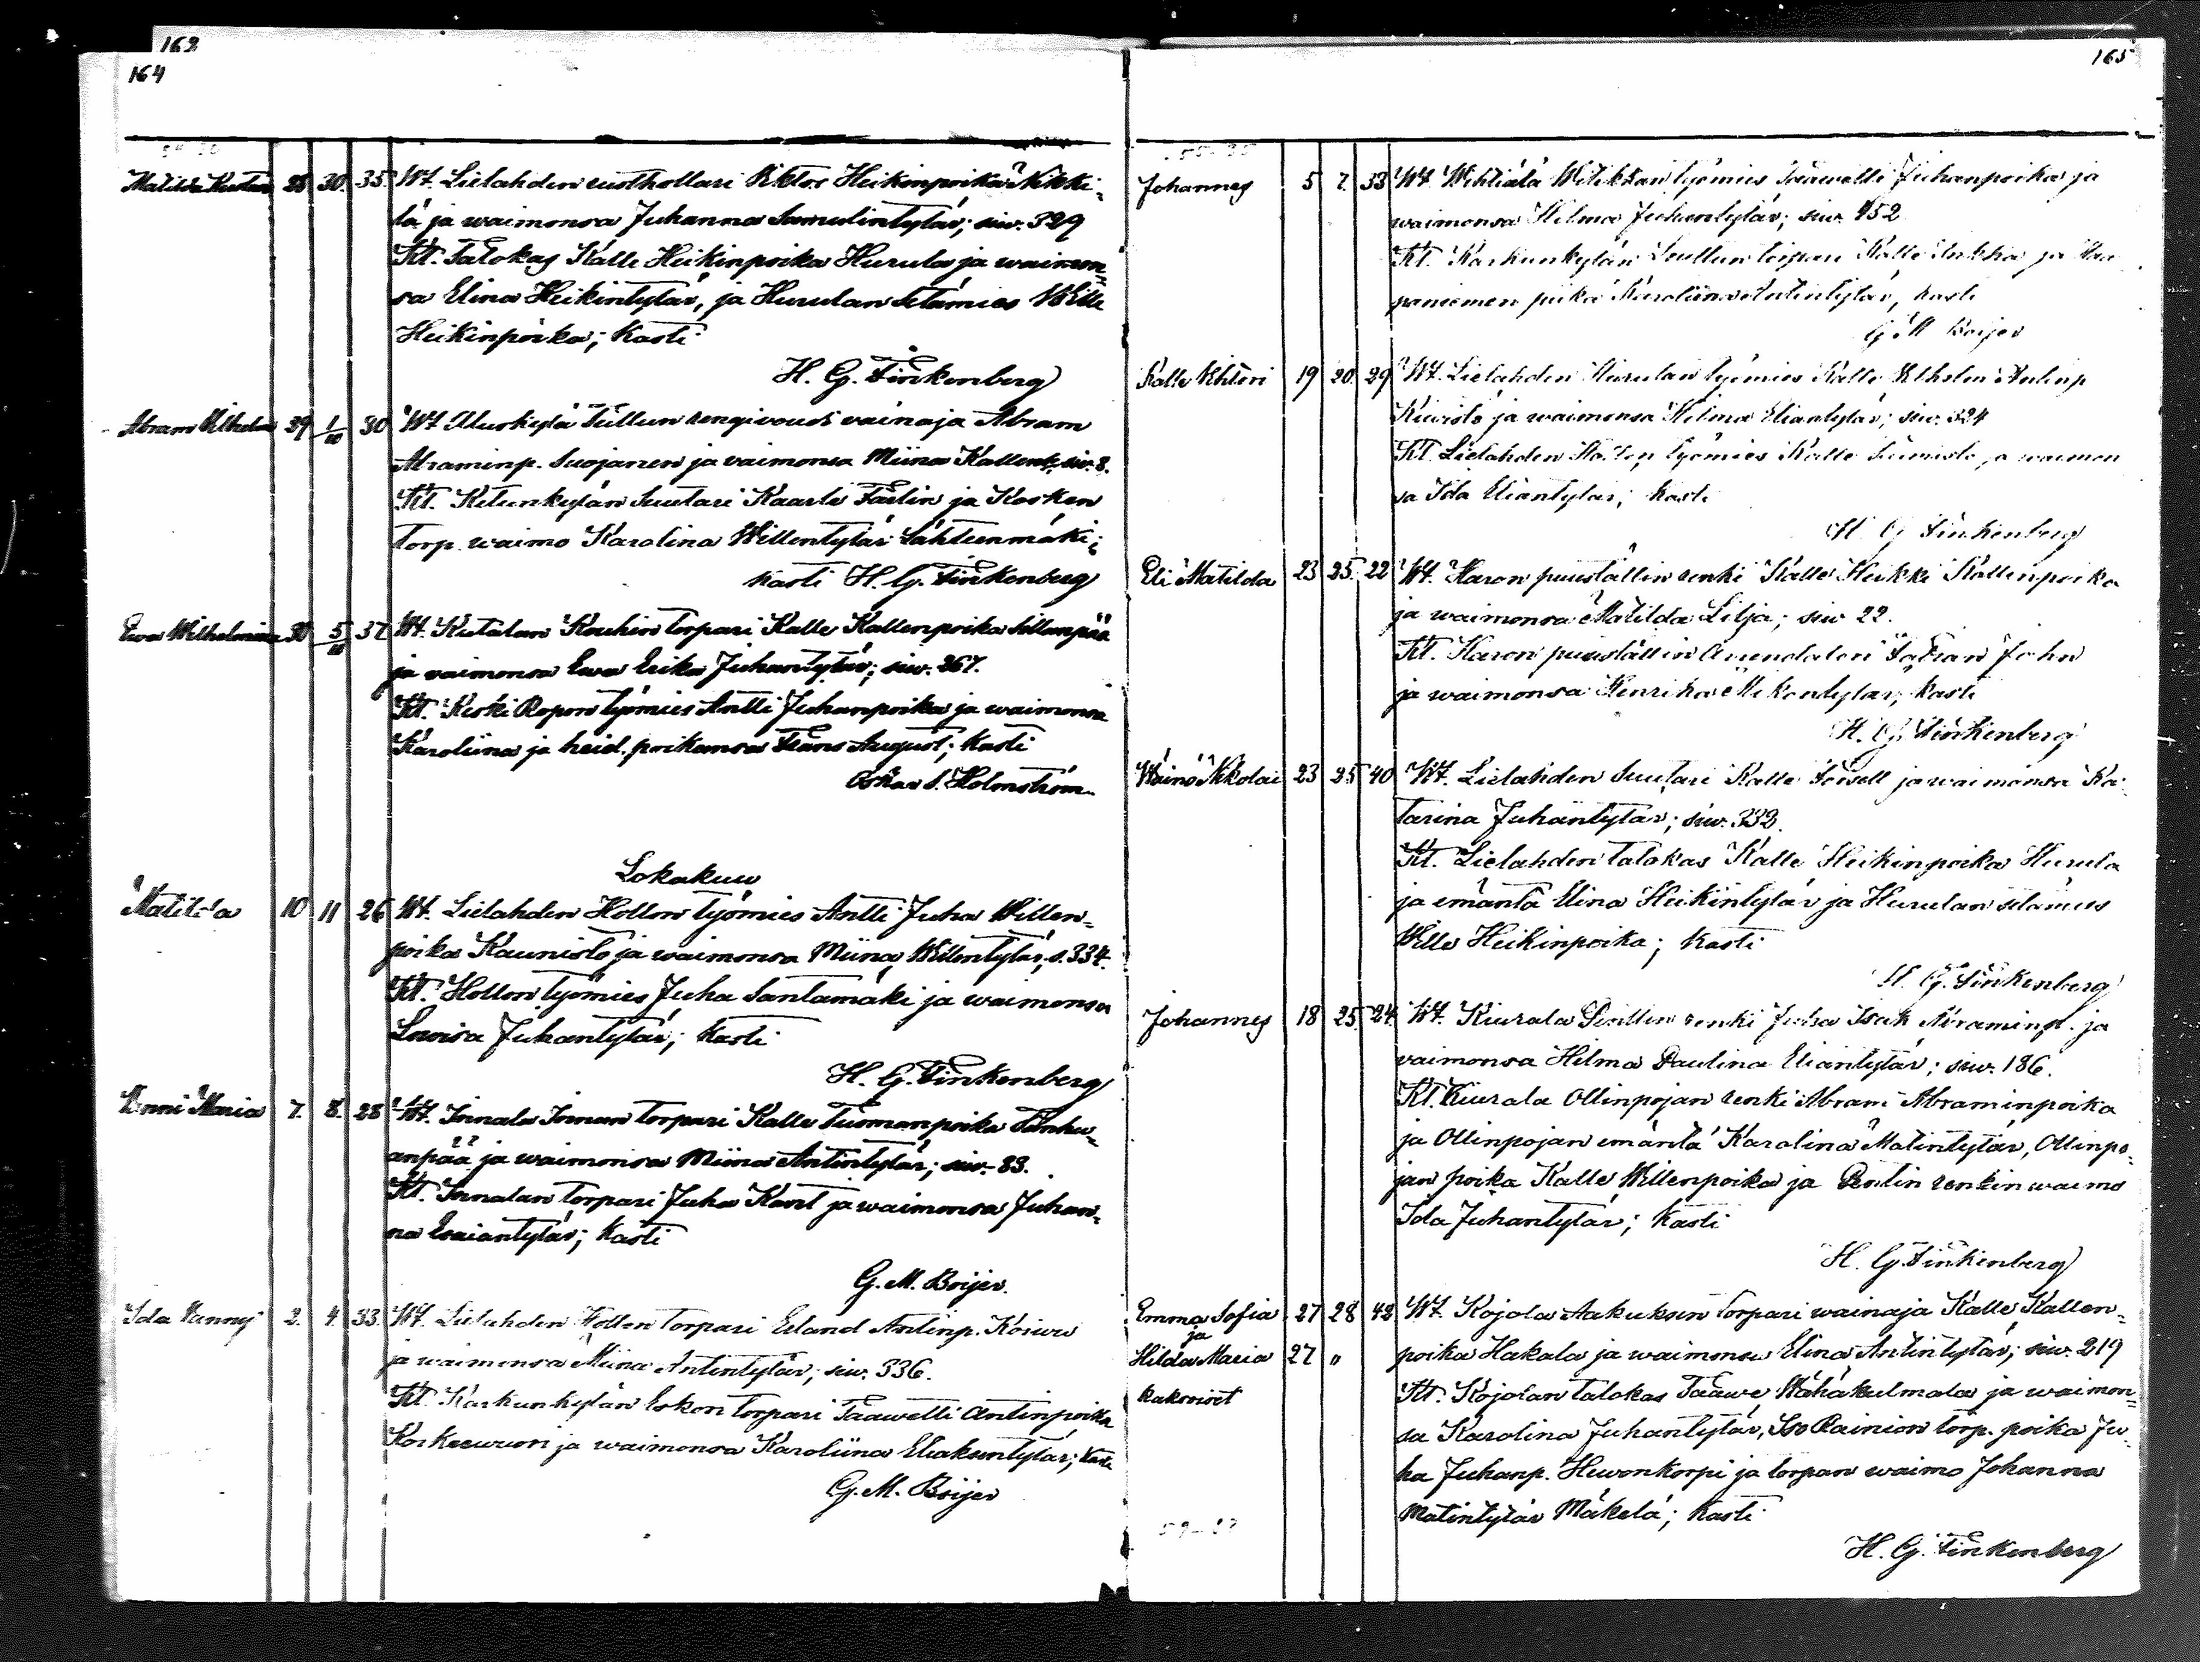 162
164
Matilda Kustaa 28 30. 35 Wt. Lielahden rusthollari Viktor Heikinpoika Nikki-
lä ja waimonsa Juhanna Samulintytär; siw. 329
Kt. Talokas Kalle Heikinpoika Hurula ja waimon-
sa Elina Heikintytär, ja Hurulan setämies Wille
Heikinpoika; Kasti
H. G. Finkenberg
Abram Wilhelm 29 1/10 30 Wt. Aluskylä Tullun rengivouti vainaja Abram
Abraminp. Suojanen ja vaimonsa Miina Kallent. siv. 8.
Kt. Ketunkylän Suutari Kaarle Färlin ja Kosken
torp. waimo Karolina Willentytär Lähteenmäki;
Kasti H. G. Finkenberg
Ewa Wilhelmina 30 5/10 37 Wt. Kutalan Rouhin torpari Kalle Kallenpoika Sillanpää
ja vaimonsa Ewa Erika Juhantytär; siw. 267.
Kt. Keski Ropon työmies Antti Juhanpoika ja waimonsa
Karoliina ja heid. poikansa Frans August; Kasti
Oskar I. Holmström
Lokakuu
Matilda 10 11 26 Wt. Lielahden Hollon työmies Antti Juha Willen-
poika Kaunisto ja waimonsa Miina Willentytär, s. 334.
Kt. Hollon työmies Juha Santamäki ja waimonsa
Lovisa Juhantytär; Kasti
H. G. Finkenberg
Anni Maria 7. 8. 28 Wt. Innala Innan torpari Kalle Tuomanpoika Tanhu-
anpää ja waimonsa Miina Antintytär; siw. 83.
Kt. Innalan torpari Juha Kant ja waimonsa Juhan-
na Esaiantytär; Kasti
G. M. Boijer.
Ida Fanny 2. 4. 33. Wt. Lielahden Hollon torpari Erland Antinp. Koiwu
ja waimonsa Miina Antintytär; siw. 336.
Kt. Karkunkylän Eskon torpari Taawetti Antinpoika
Korkeewuori ja waimonsa Karoliina Eliakuntytär; Kasti
G. M. Boijer
165
Johannes 5 7. 33 Wt. työmies Taawetti Juhanpoika ja
waimonsa Hilma Juhantytär; siw. 452
Kt. Karkunkylän torpari Kalle ja Haa
paniemen piika Karoliina Antintytär, kasti
G. M. Boijer
Kalle Ihtori 19 20 29 Wt. Lielahden Hurulan työmies Kalle Antinp
Kiwistö ja waimonsa Hilma Eliantytär; siw. 324
Kt. Lielahden työmies Kalle ja waimon
sa Ida Eliantytär; kasti
H. G. Finkenberg
Eli Matilda 23 25. 22 Wt. Karon puuställin renki Kalle Heikki Kallenpoika
ja waimonsa Matilda Lilja; siw 22.
Kt. Karon puuställin Arendatori John
ja waimonsa Henrika Mikontytär; Kasti
H. G. Finkenberg
Wäinö Nikolai 23 25 40 Wt. Lielahden Suutari Kalle Forsell ja waimonsa Ka-
tarina Juhantytär; siw. 332.
Kt. Lielahden talokas Kalle Heikinpoika Hurula
ja emäntä Elina Heikintytär ja Hurulan setämies
Wille Heikinpoika; Kasti
H. G. Finkenberg
Johannes 18 25. 24 Wt. Kiurala Pentin renki Juha Isak Abraminp. ja
vaimonsa Hilma Paulina Eliantytär; siw. 186.
Kt. Kiurala Ollinpojan renki Abram Abraminpoika
ja Ollinpojan emäntä Karolina Matintytär, Ollinpo-
jan poika Kalle Willenpoika ja Pentin renkin waimo
Ida Juhantytär; Kasti
H. G. Finkenberg
Emma Sofia 27 28 42 Wt. Kojola Aakuksen torpari wainaja Kalle Kallen-
ja
Hilda Maria 27 " poika Hakala ja waimonsa Elina Antintytär; siw. 219
kaksoiset Kt. Kojolan talokas Taawe Wähäkulmala ja waimon-
sa Karolina Juhantytär, Iso Rainion torp. poika Ju-
ha Juhanp. Hewonkorpi ja torpan waimo Johanna
Matintytär Mäkelä; Kasti
H. G. Finkenberg